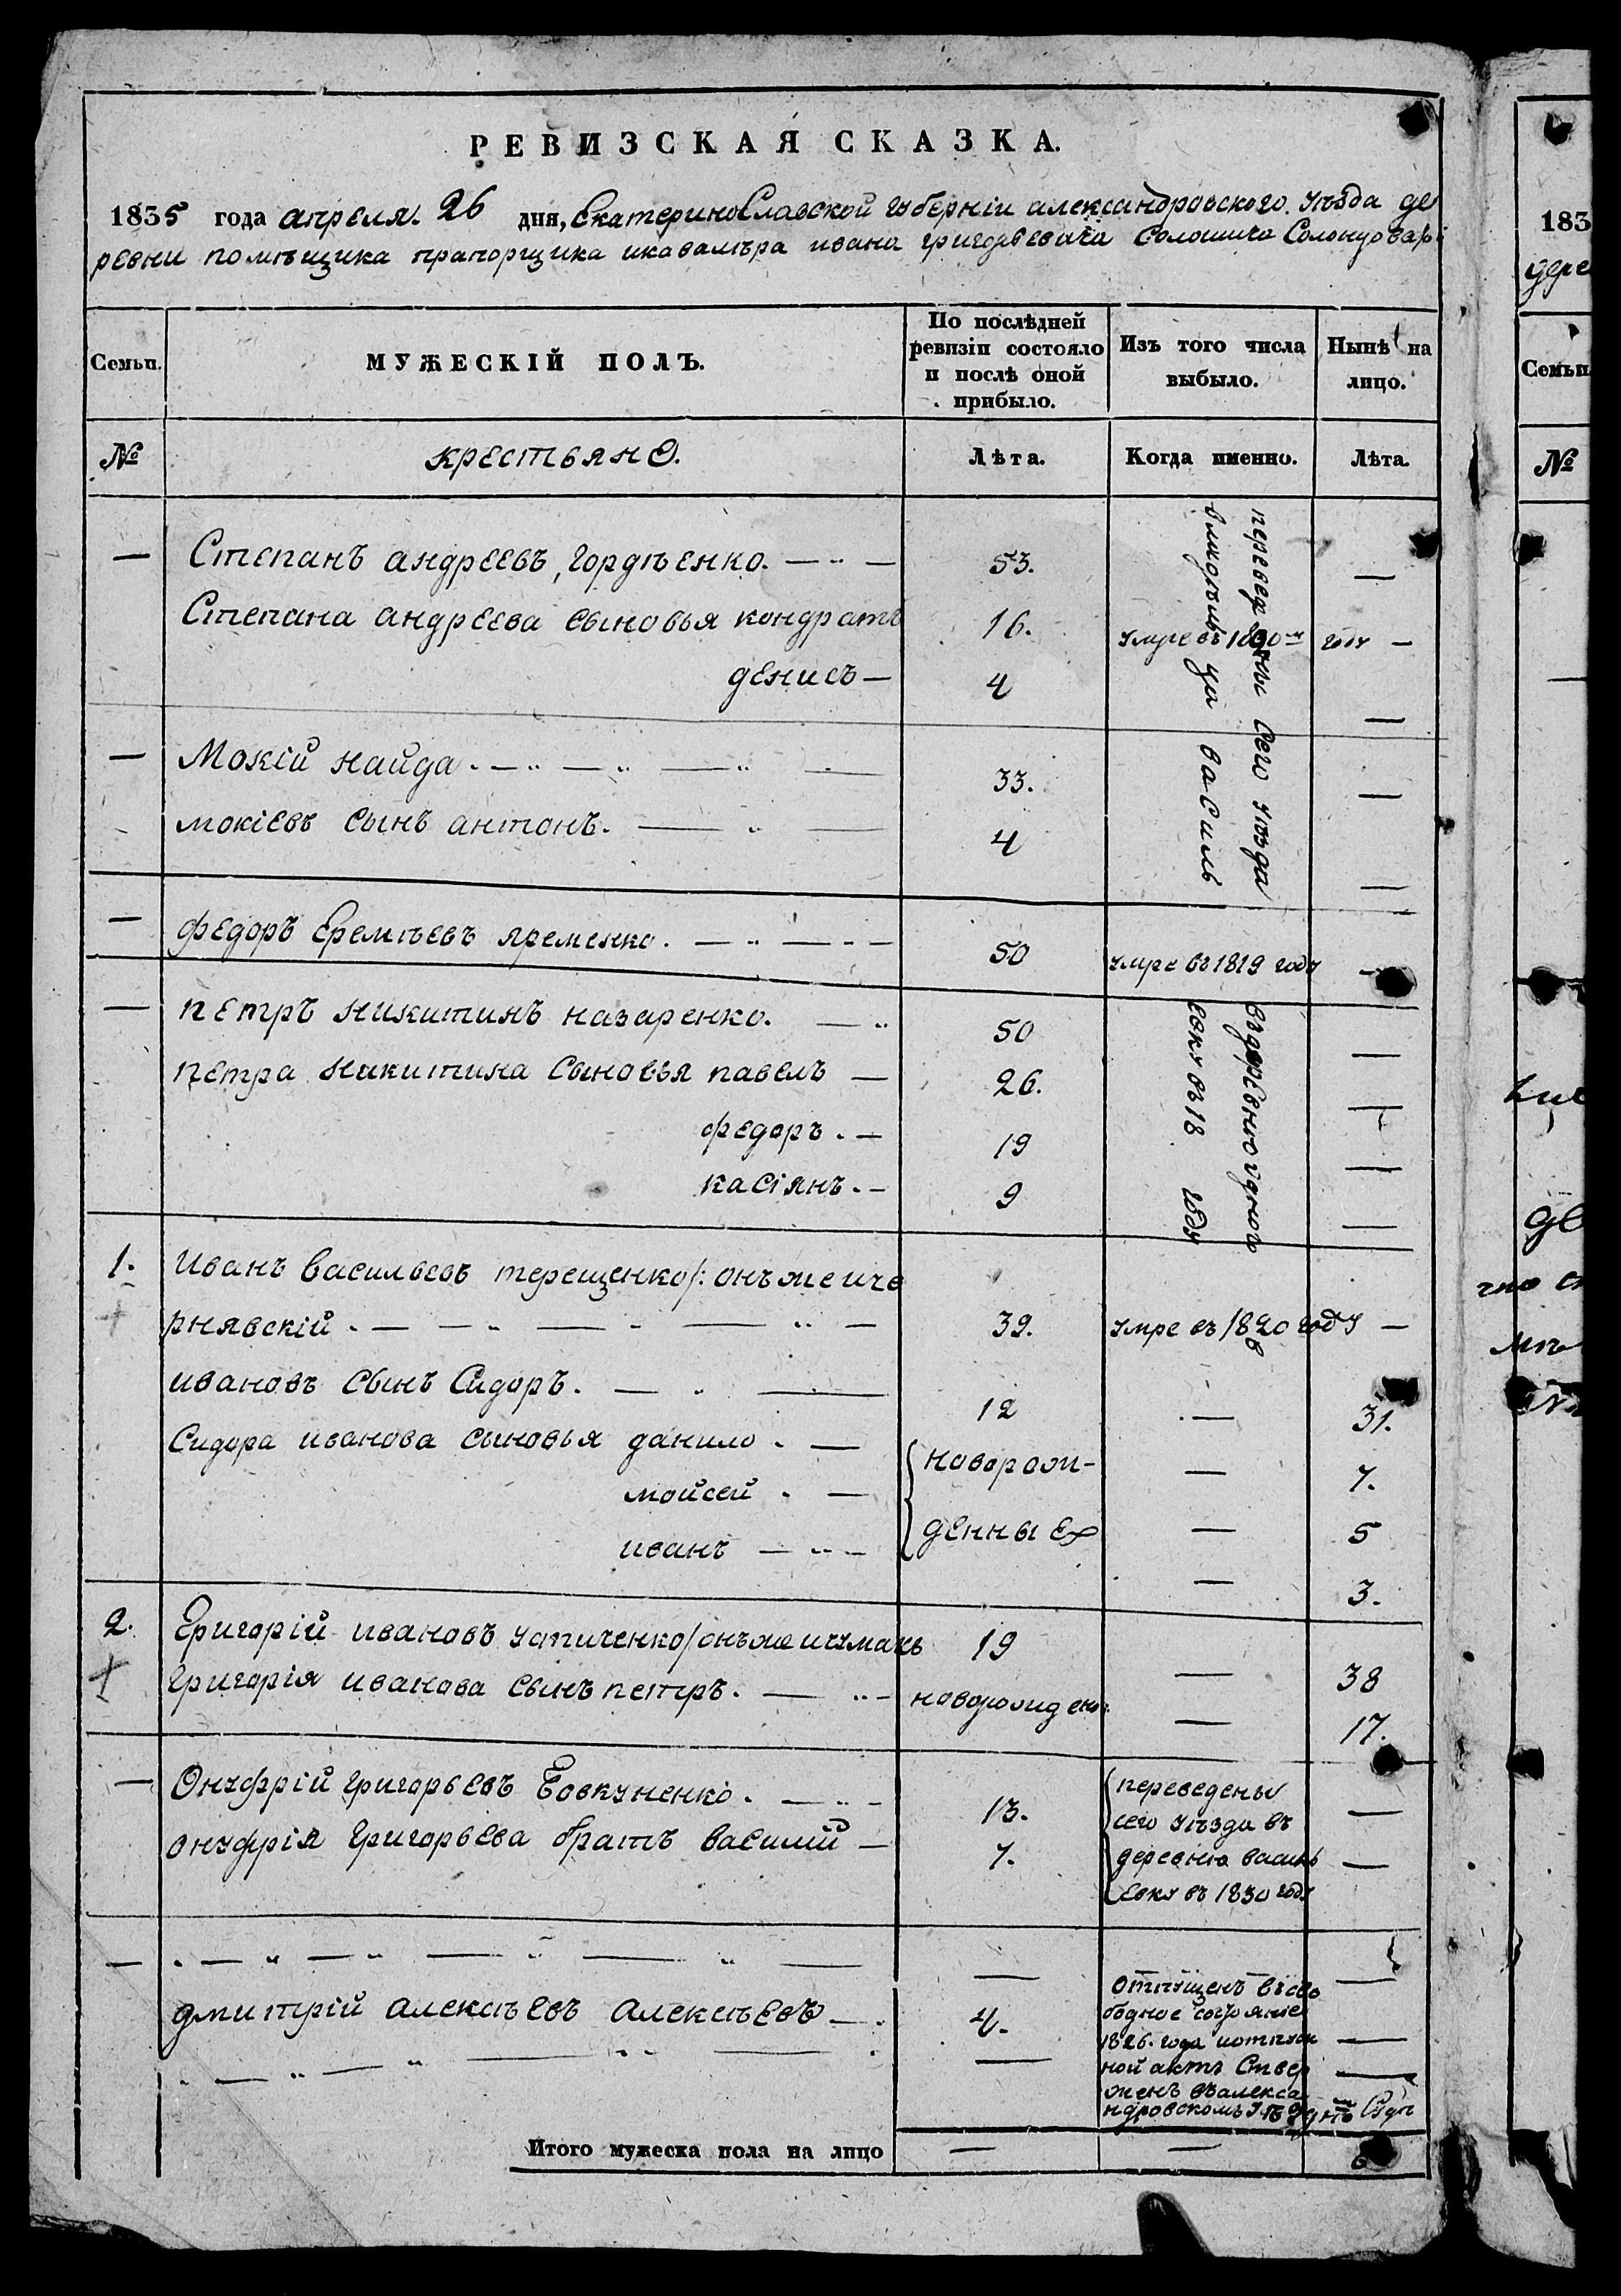 РЕВИЗСКАЯ СКАЗКА.
1835 года апреля. 26 дня, ЕкатериноСлавской губерніи александровского. уѣзда де
ревни помѣщика прапорщика икавалѣра ивана григорьевича
Семьи.
МУЖЕСКІЙ ПОЛЪ.
По послѣдней ревизіи состояло и послѣ оной прибыло.
Изъ того числа выбыло.
Нынѣ на лицо.
№
крестьянѣ.
Лѣта.
Когда именно.
Лѣта.
— Степанъ андреевъ, гордѣенко. — 53. —
Степана андреева сыновья кондратъ 16. умре въ году —
денисъ — 4 —
— Мокій найда. — 33. —
мокіевъ сынъ антонъ. — 4 —
переведены сего уѣзда
василь
— федоръ Еремѣевъ яременко. — 50 умре въ 1819 году —
— петръ никитинъ назаренко. — 50 —
петра никитина сыновья павелъ — 26. —
федоръ. — 19 —
касіянъ. — 9 —
въ деревню
евку въ 18 году
1. Иванъ васильевъ терещенко/: онъ же иче
рнявскій. — 39. умре въ 1820 году —
ивановъ сынъ Сидоръ. — 12 — 31.
Сидора иванова сыновья данило. — новорож- — 7.
мойсей. — денные — 5
иванъ — — 3.
2. Григорій ивановъ /онъ же ичумакъ 19 — 38
григорія иванова сынъ петръ. — новорожденъ — 17.
— Онуфрій григорьевъ Бовкуненко. — 13. переведены —
сего уѣзда въ
онуфрія григорьева братъ василий — 7. деревню василь —
евку въ 1830 году
— — — отпущенъ въ сво —
дмитрій алексѣевъ алексѣевъ — 4. бодное состояніе
1826. года —
— — ной актъ Ствер —
женъ въ алекса
ндровскомъ
Итого мужеска пола на лицо — — 6
183
дере
Семьи
№